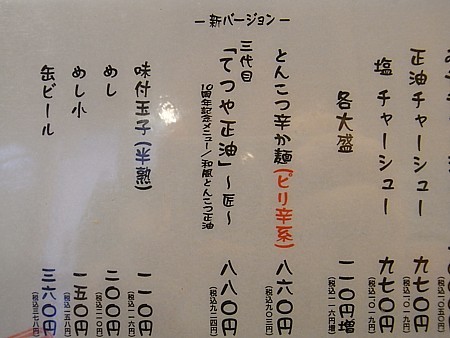 正油チャーシュー 九七〇円
(税込一〇一九円)
塩チャーシュー 九七〇円
(税込一〇一九円)
各大盛 一一〇円増
(税込一一六円増)
－新バージョン－
とんこつ辛か麺(ピリ辛系) 八六〇円
(税込九〇三円)
三代目
「てつや正油」～匠～ 八八〇円
10周年記念メニュー/和風とんこつ正油
(税込九二四円)
味付玉子(半熟) 一一〇円
(税込一一六円)
めし 二〇〇円
(税込二一〇円)
めし小 一五〇円
(税込一五八円)
缶ビール 三六〇円
(税込三七八円)